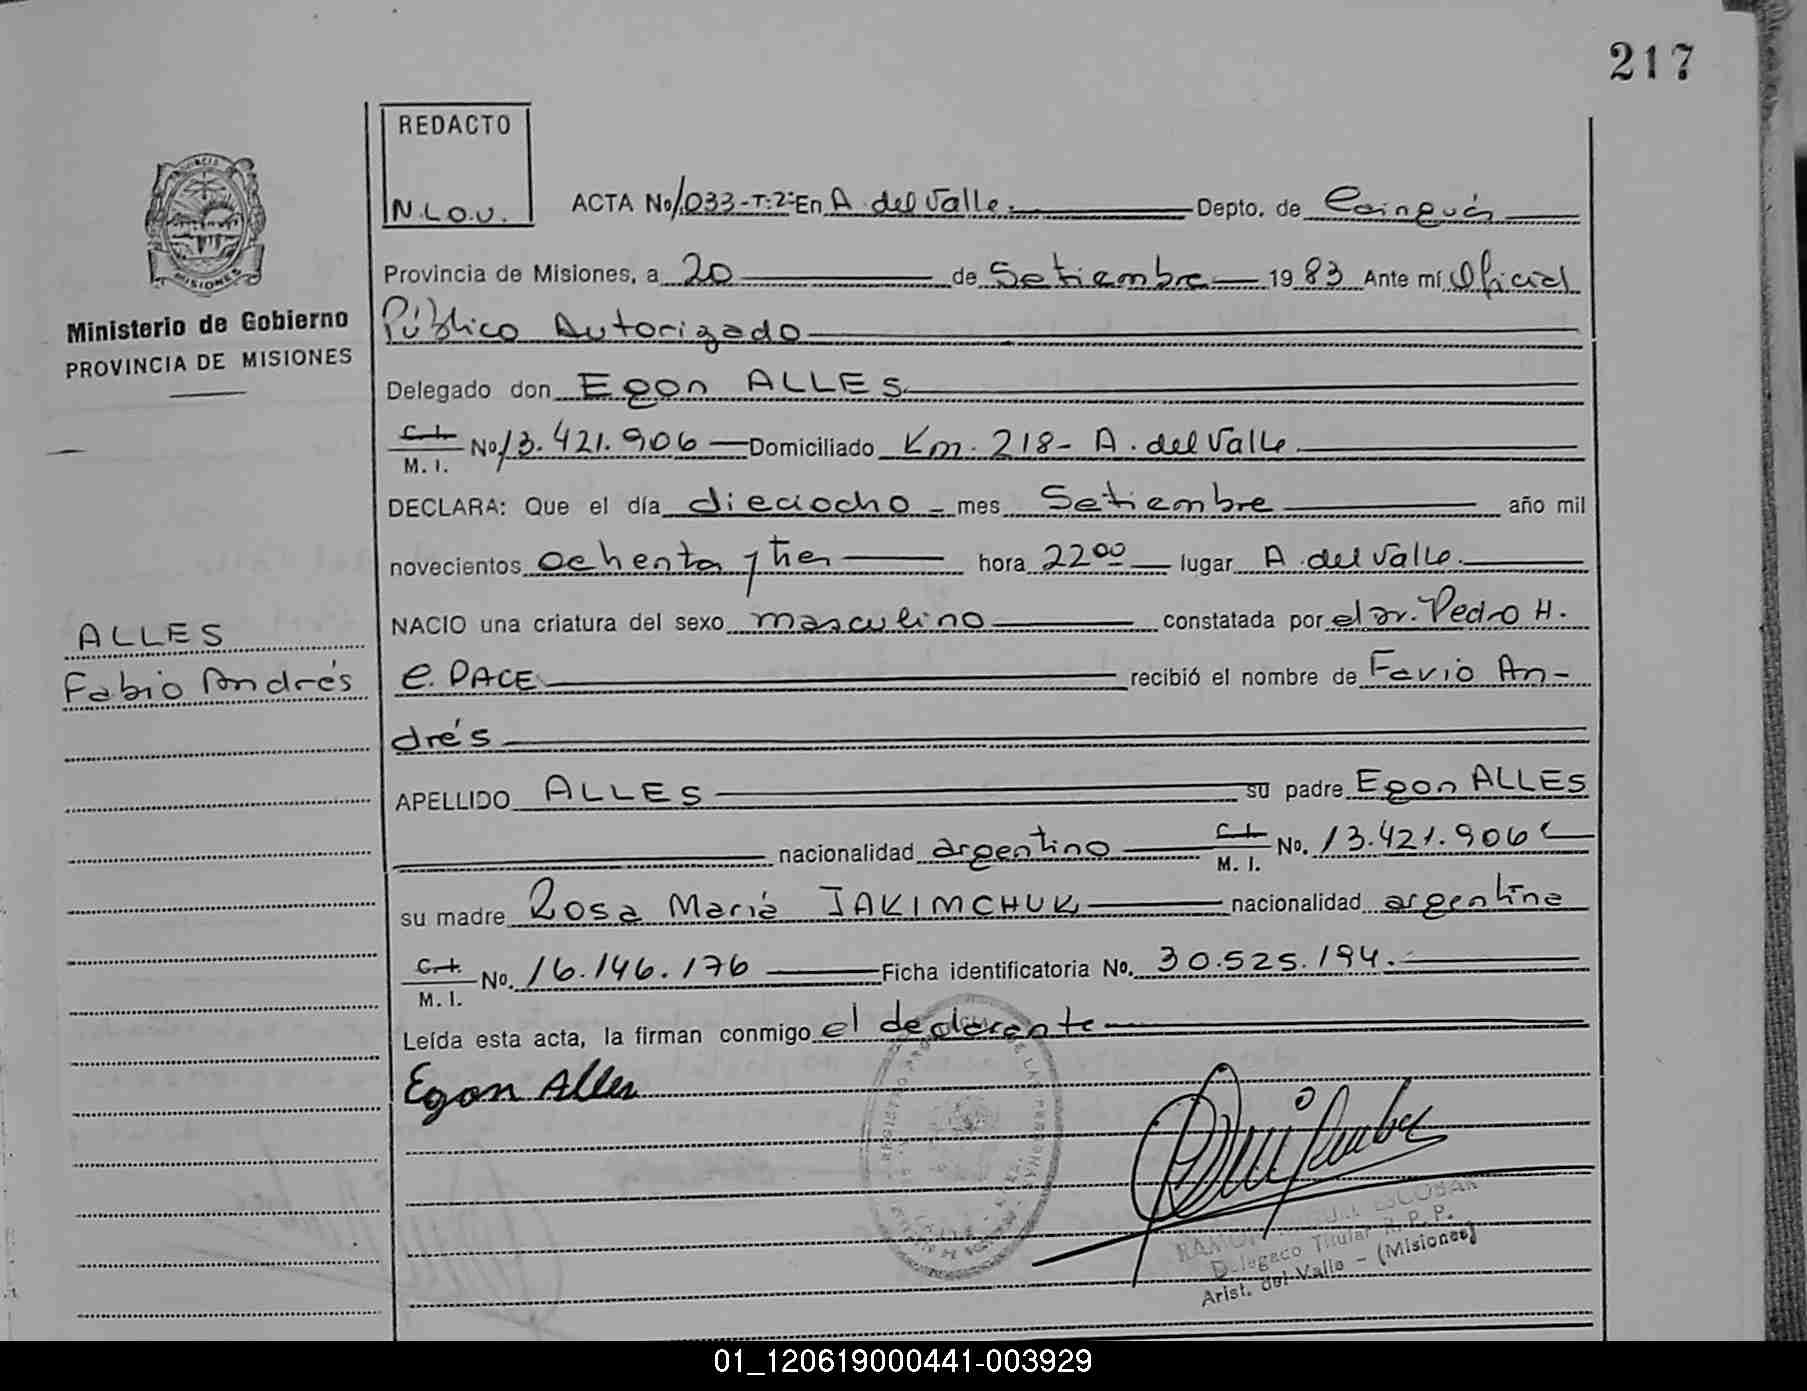 217
REDACTO
N.L.O.U.
ACTA No 1.033-T:2º En A. del Valle. Depto. de Cainguás
Provincia de Misiones, a 20 de Setiembre 1983 Ante mí Oficial
Público Autorizado
Ministerio de Gobierno
PROVINCIA DE MISIONES
Delegado don Egon ALLES
C.I. M. I. No 13.421.906 Domiciliado Km. 218- A. del Valle
DECLARA: Que el día dieciocho - mes Setiembre año mil
novecientos ochenta y tres hora 22⁰⁰ lugar A. del Valle.
NACIO una criatura del sexo masculino constatada por el Dr. Pedro H.
ALLES
Fabio Andrés
e. PACE recibió el nombre de Favio An-
drés
APELLIDO ALLES su padre Egon ALLES
nacionalidad argentino C.I. M. I. No. 13.421.906
su madre Rosa María JAKIMCHUK nacionalidad argentina
C.I. M. I. No. 16.146.176 Ficha identificatoria No. 30.525.194.
Leída esta acta, la firman conmigo el declarante
Egon Alles
RAMON ESCOBAR
Delegado Titular R. P. P.
Arist. del Valle - (Misiones)
01_120619000441-003929